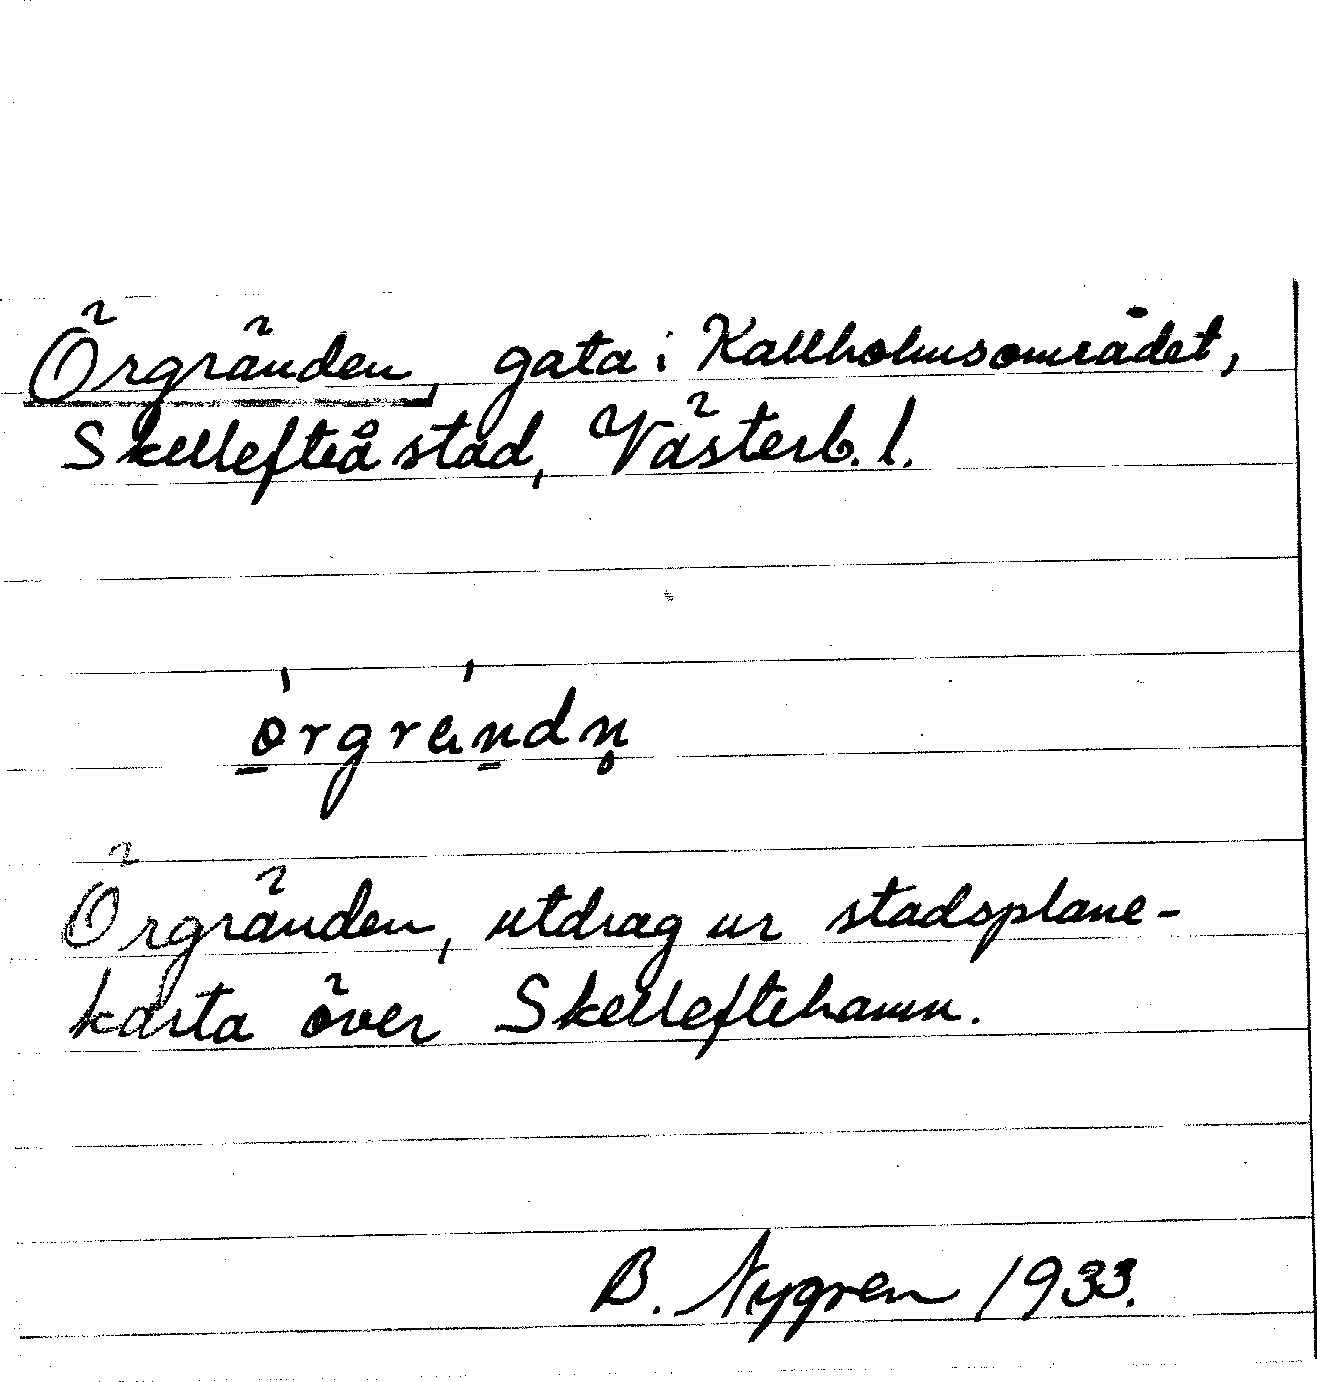 Örgränden, gata i Kallholmsområdet,
Skellefteå stad, Västerb. l.
örgrändn̥
Örgränden, utdrag ur stadsplane-
karta över Skelleftehamn.
B. Nygren 1933.